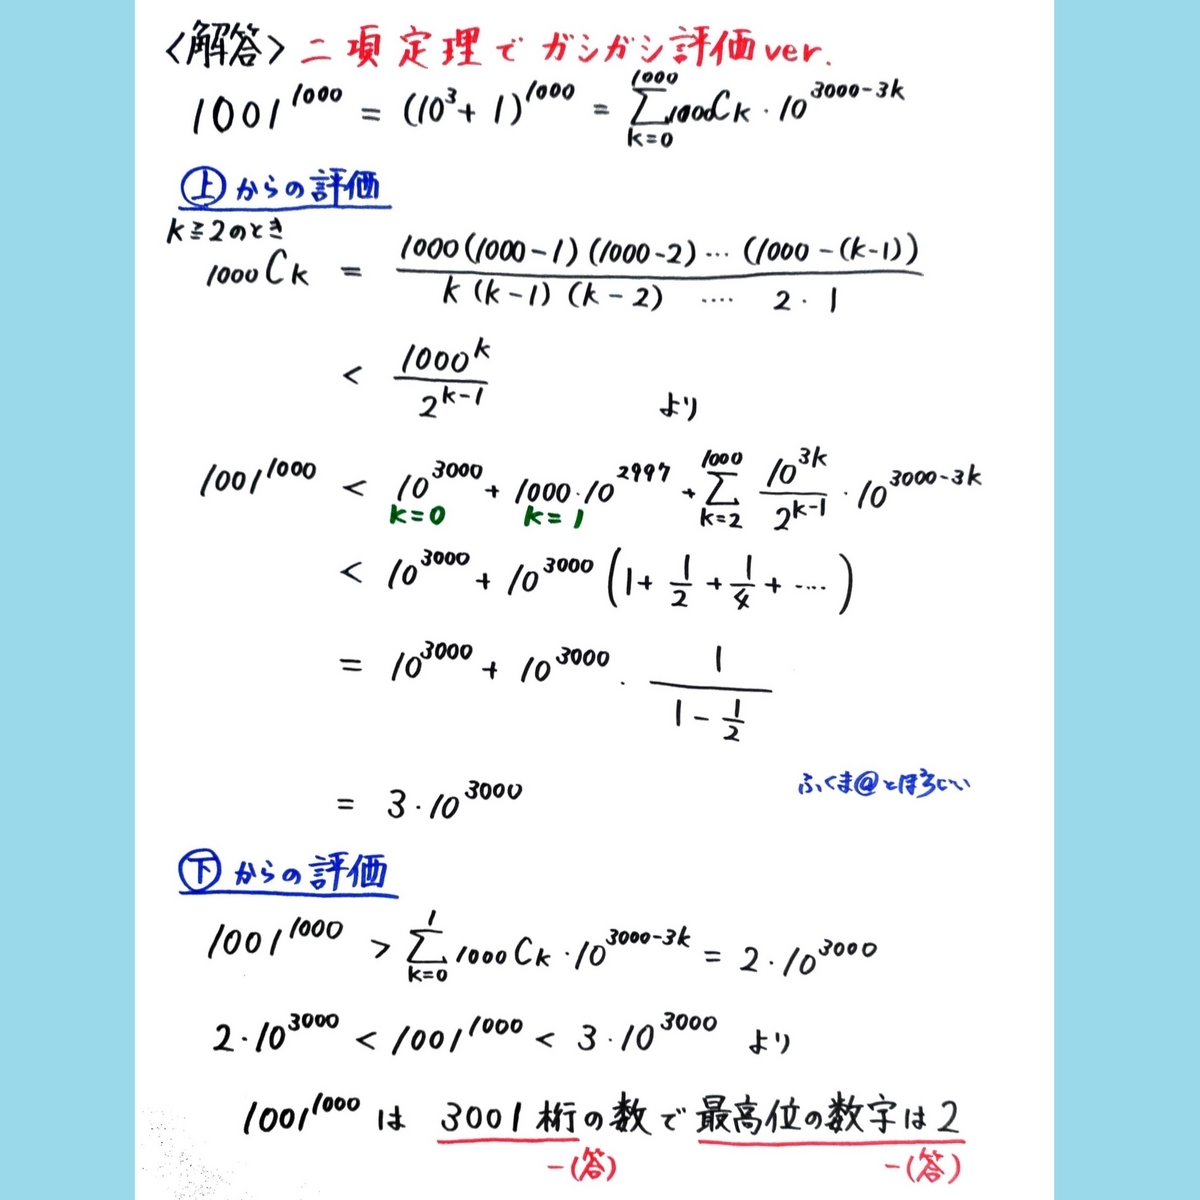 〈解答〉二項定理でガシガシ評価ver.
1001^1000 = (10^3+1)^1000 = Σ_{k=0}^{1000} 1000Ck・10^{3000-3k}
上からの評価
k≧2のとき
1000Ck = 1000(1000-1)(1000-2)…(1000-(k-1)) / k(k-1)(k-2)‥‥2・1
< 1000^k / 2^{k-1} より
1001^1000 < 10^3000 + 1000・10^2997 + Σ_{k=2}^{1000} 10^{3k} / 2^{k-1}・10^{3000-3k}
k=0 k=1
< 10^3000 + 10^3000 (1+ 1/2 + 1/4 + ‥‥)
= 10^3000 + 10^3000・1 / (1 - 1/2)
= 3・10^3000
ふくま@とほろじい
下からの評価
1001^1000 > Σ_{k=0}^{1} 1000Ck・10^{3000-3k} = 2・10^3000
2・10^3000 < 1001^1000 < 3・10^3000 より
1001^1000 は 3001桁の数で最高位の数字は2
-(答) -(答)